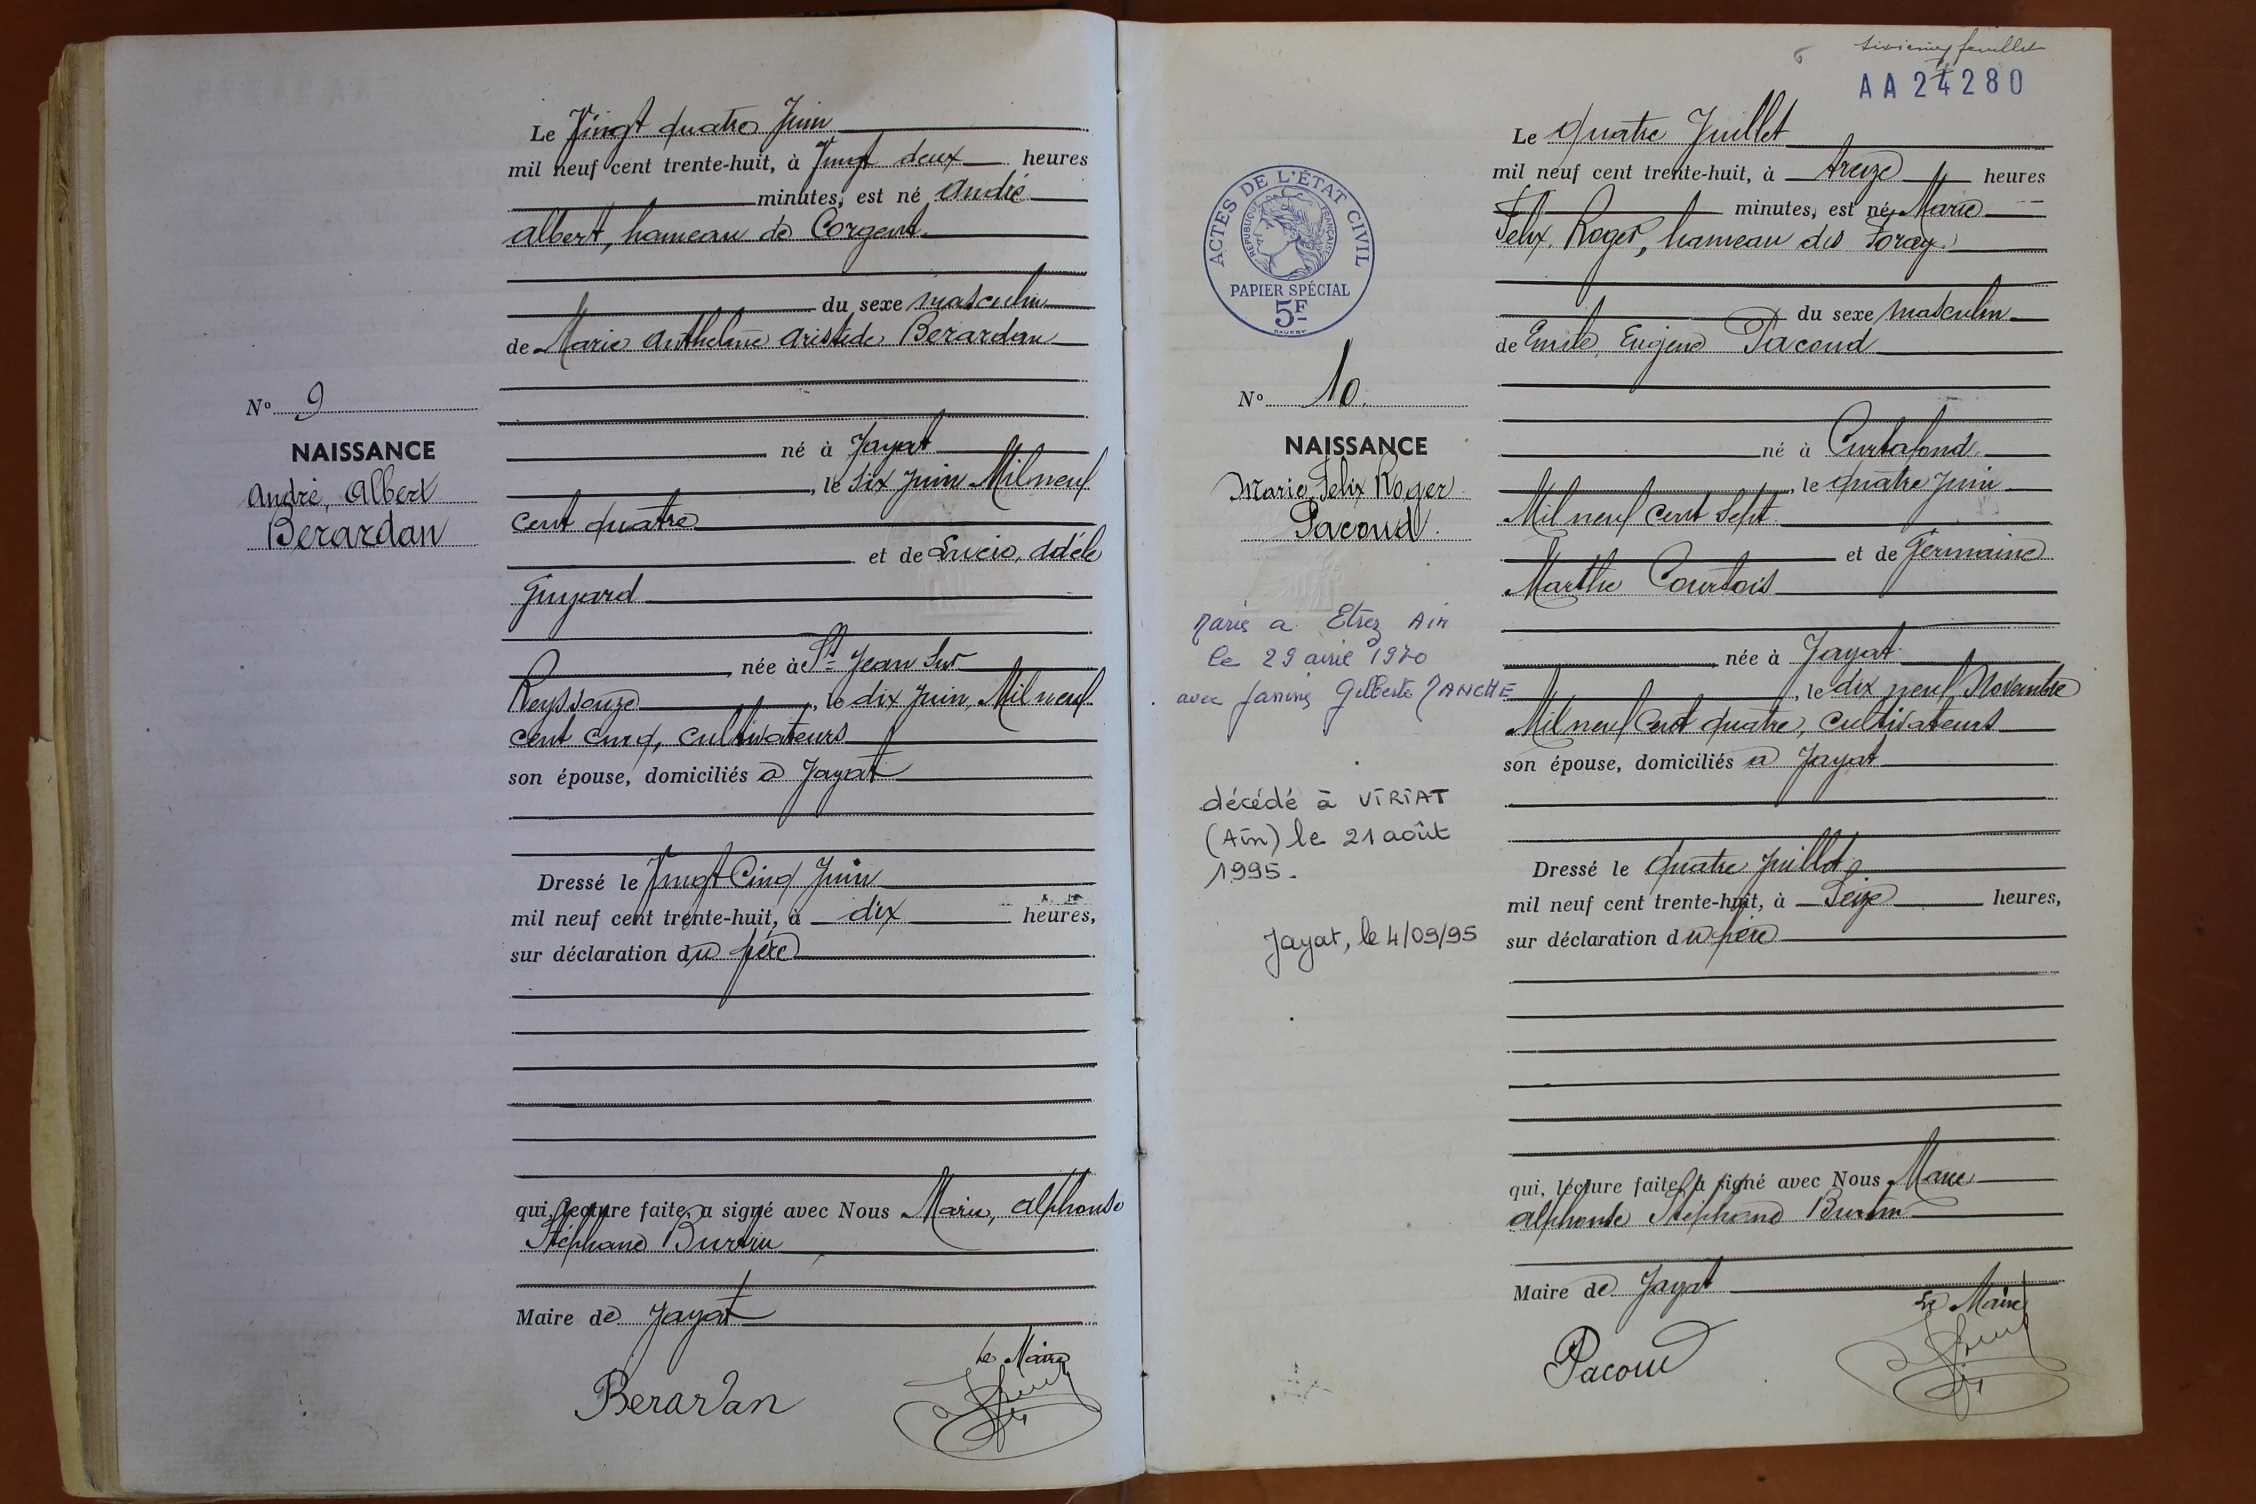 Le Vingt quatre Juin
mil neuf cent trente-huit, à Vingt deux heures
minutes, est né André
Albert, hameau de Corgent.
du sexe masculin
de Marie Anthelme Aristide Berardan
N° 9
NAISSANCE
André, Albert
Berardan
né à Jayat
, le Six Juin Mil neuf
cent quatre
et de Lucie, Adèle
Guyard
née à St Jean Sur
Reyssouze, le dix Juin, Mil neuf
cent cinq, cultivateurs
son épouse, domiciliés à Jayat
Dressé le Vingt Cinq Juin
mil neuf cent trente-huit, à dix heures,
sur déclaration du père
qui, lecture faite, a signé avec Nous Marie, Alphonse
Stéphane Burtin
Maire de Jayat
Le Maire
Berardan
sixième feuillet
6
AA 24280
Le quatre Juillet
mil neuf cent trente-huit, à treize heures
minutes, est né Marie
Felix, Roger, hameau des
du sexe masculin
de Emile, Eugène Pacoud
ACTES DE L'ÉTAT CIVIL
RÉPUBLIQUE FRANÇAISE
PAPIER SPÉCIAL
5F
N° 10.
NAISSANCE
Marie, Felix Roger
Pacoud.
né à Curtafond.
, le quatre Juin
Mil neuf cent Sept.
et de Germaine
Marthe Courtois
née à Jayat
, le dix neuf Novembre
Mil neuf Cent quatre, cultivateurs
son épouse, domiciliés à Jayat
Marié à Etrez Ain
le 29 avril 1970
avec Janine Gilberte MANCHE
décédé à VIRIAT
(Ain) le 21 août
1995.
Jayat, le 4/09/95
Dressé le quatre Juillet
mil neuf cent trente-huit, à Seize heures,
sur déclaration du père
qui, lecture faite, a signé avec Nous Marie
Alphonse Stéphane Burtin
Maire de Jayat
Le Maire
Pacoud